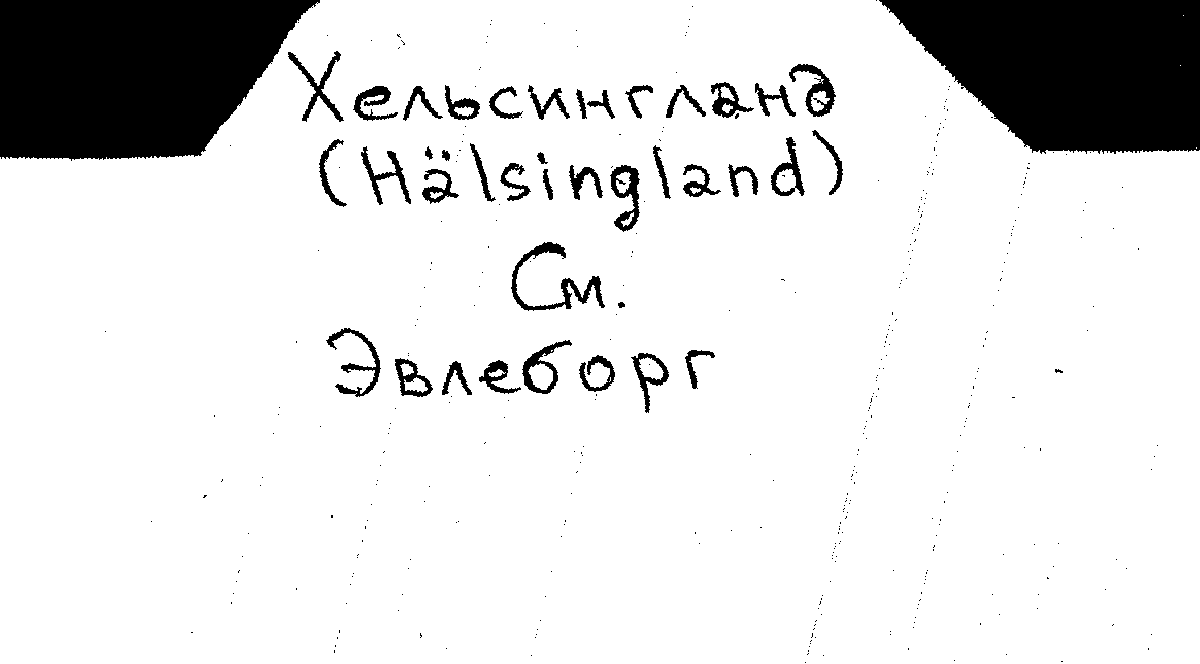 Хельсингланд
(Hälsingland)
См.
Эвлеборг